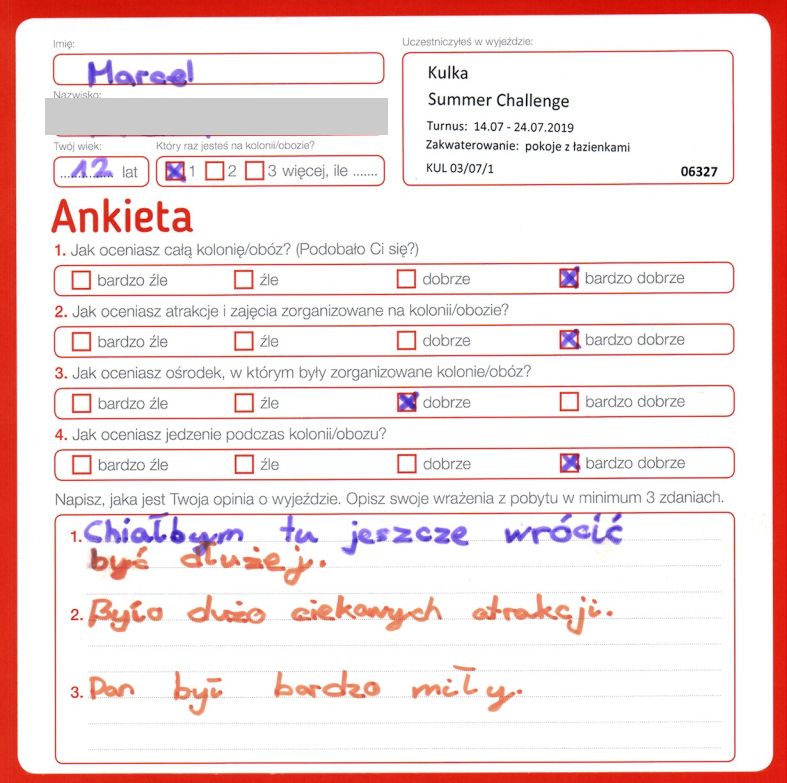 Imię:
Marcel
Nazwisko:
Twój wiek:
12 lat
Który raz jesteś na kolonii/obozie?
1 2 3 więcej, ile .......
Uczestniczyłeś w wyjeździe:
Kulka
Summer Challenge
Turnus: 14.07 - 24.07.2019
Zakwaterowanie: pokoje z łazienkami
KUL 03/07/1 06327
Ankieta
1. Jak oceniasz całą kolonię/obóz? (Podobało Ci się?)
bardzo źle źle dobrze bardzo dobrze
2. Jak oceniasz atrakcje i zajęcia zorganizowane na kolonii/obozie?
bardzo źle źle dobrze bardzo dobrze
3. Jak oceniasz ośrodek, w którym były zorganizowane kolonie/obóz?
bardzo źle źle dobrze bardzo dobrze
4. Jak oceniasz jedzenie podczas kolonii/obozu?
bardzo źle źle dobrze bardzo dobrze
Napisz, jaka jest Twoja opinia o wyjeździe. Opisz swoje wrażenia z pobytu w minimum 3 zdaniach.
1. Chiałbym tu jeszcze wrócić
być dłużej.
2. Było dużo ciekawych atrakcji.
3. Pan był bardzo miły.